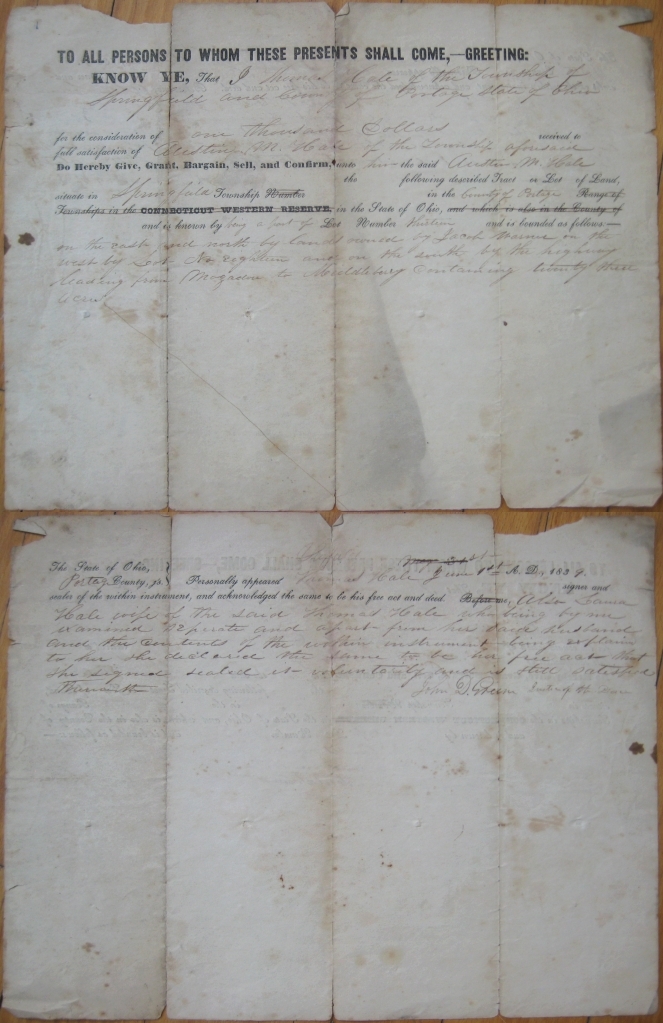 TO ALL PERSONS TO WHOM THESE PRESENTS SHALL COME,—GREETING:
KNOW YE, That I Thomas Hale of the Township of
Springfield and County of Portage State of Ohio
for the consideration of one thousand Dollars received to
full satisfaction of Austin M. Hale of the Township aforesaid
Do Hereby Give, Grant, Bargain, Sell, and Confirm, unto him the said Austin M. Hale
the following described Tract or Lot of Land,
situate in Springfield Township Number in the County of Portage Range of
Townships in the CONNECTICUT WESTERN RESERVE, in the State of Ohio, and which is also in the County of
and is known by being a part of Lot Number thirteen and is bounded as follows—
on the east and north by lands owned by Jacob on the
west by Lot No. eighteen and on the south by the highway
leading from Mogadore to Middlebury Containing twenty three
acres
The State of Ohio,
Portage County, ss. Personally appeared Thomas Hale June 1st A. D. 1839.
signer and
sealer of the within instrument, and acknowledged the same to be his free act and deed. Before me, Also Laura
Hale wife of the said Thomas Hale who being by me
examined seperate and apart from her said husband
and the contents of the within instrument being explained
to her she declared the same to be her free act that
she signed sealed it voluntarily and is still satisfied
therewith John D. Justice of the Peace